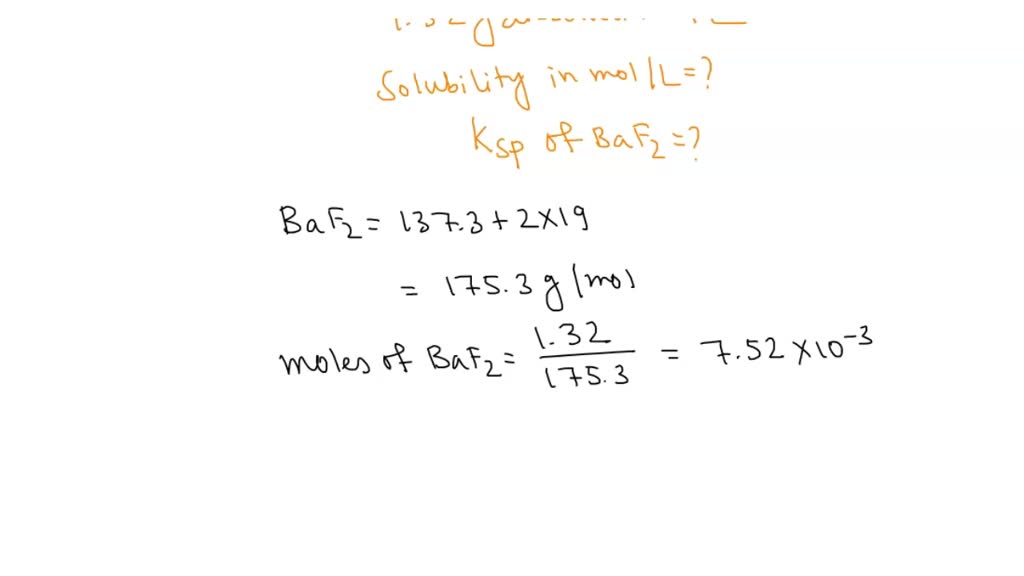 Solubility in mol/L=?
Ksp of BaF2=?
BaF2= 137.3+2×19
= 175.3 g/mol
moles of BaF2= 1.32/175.3 = 7.52×10^-3